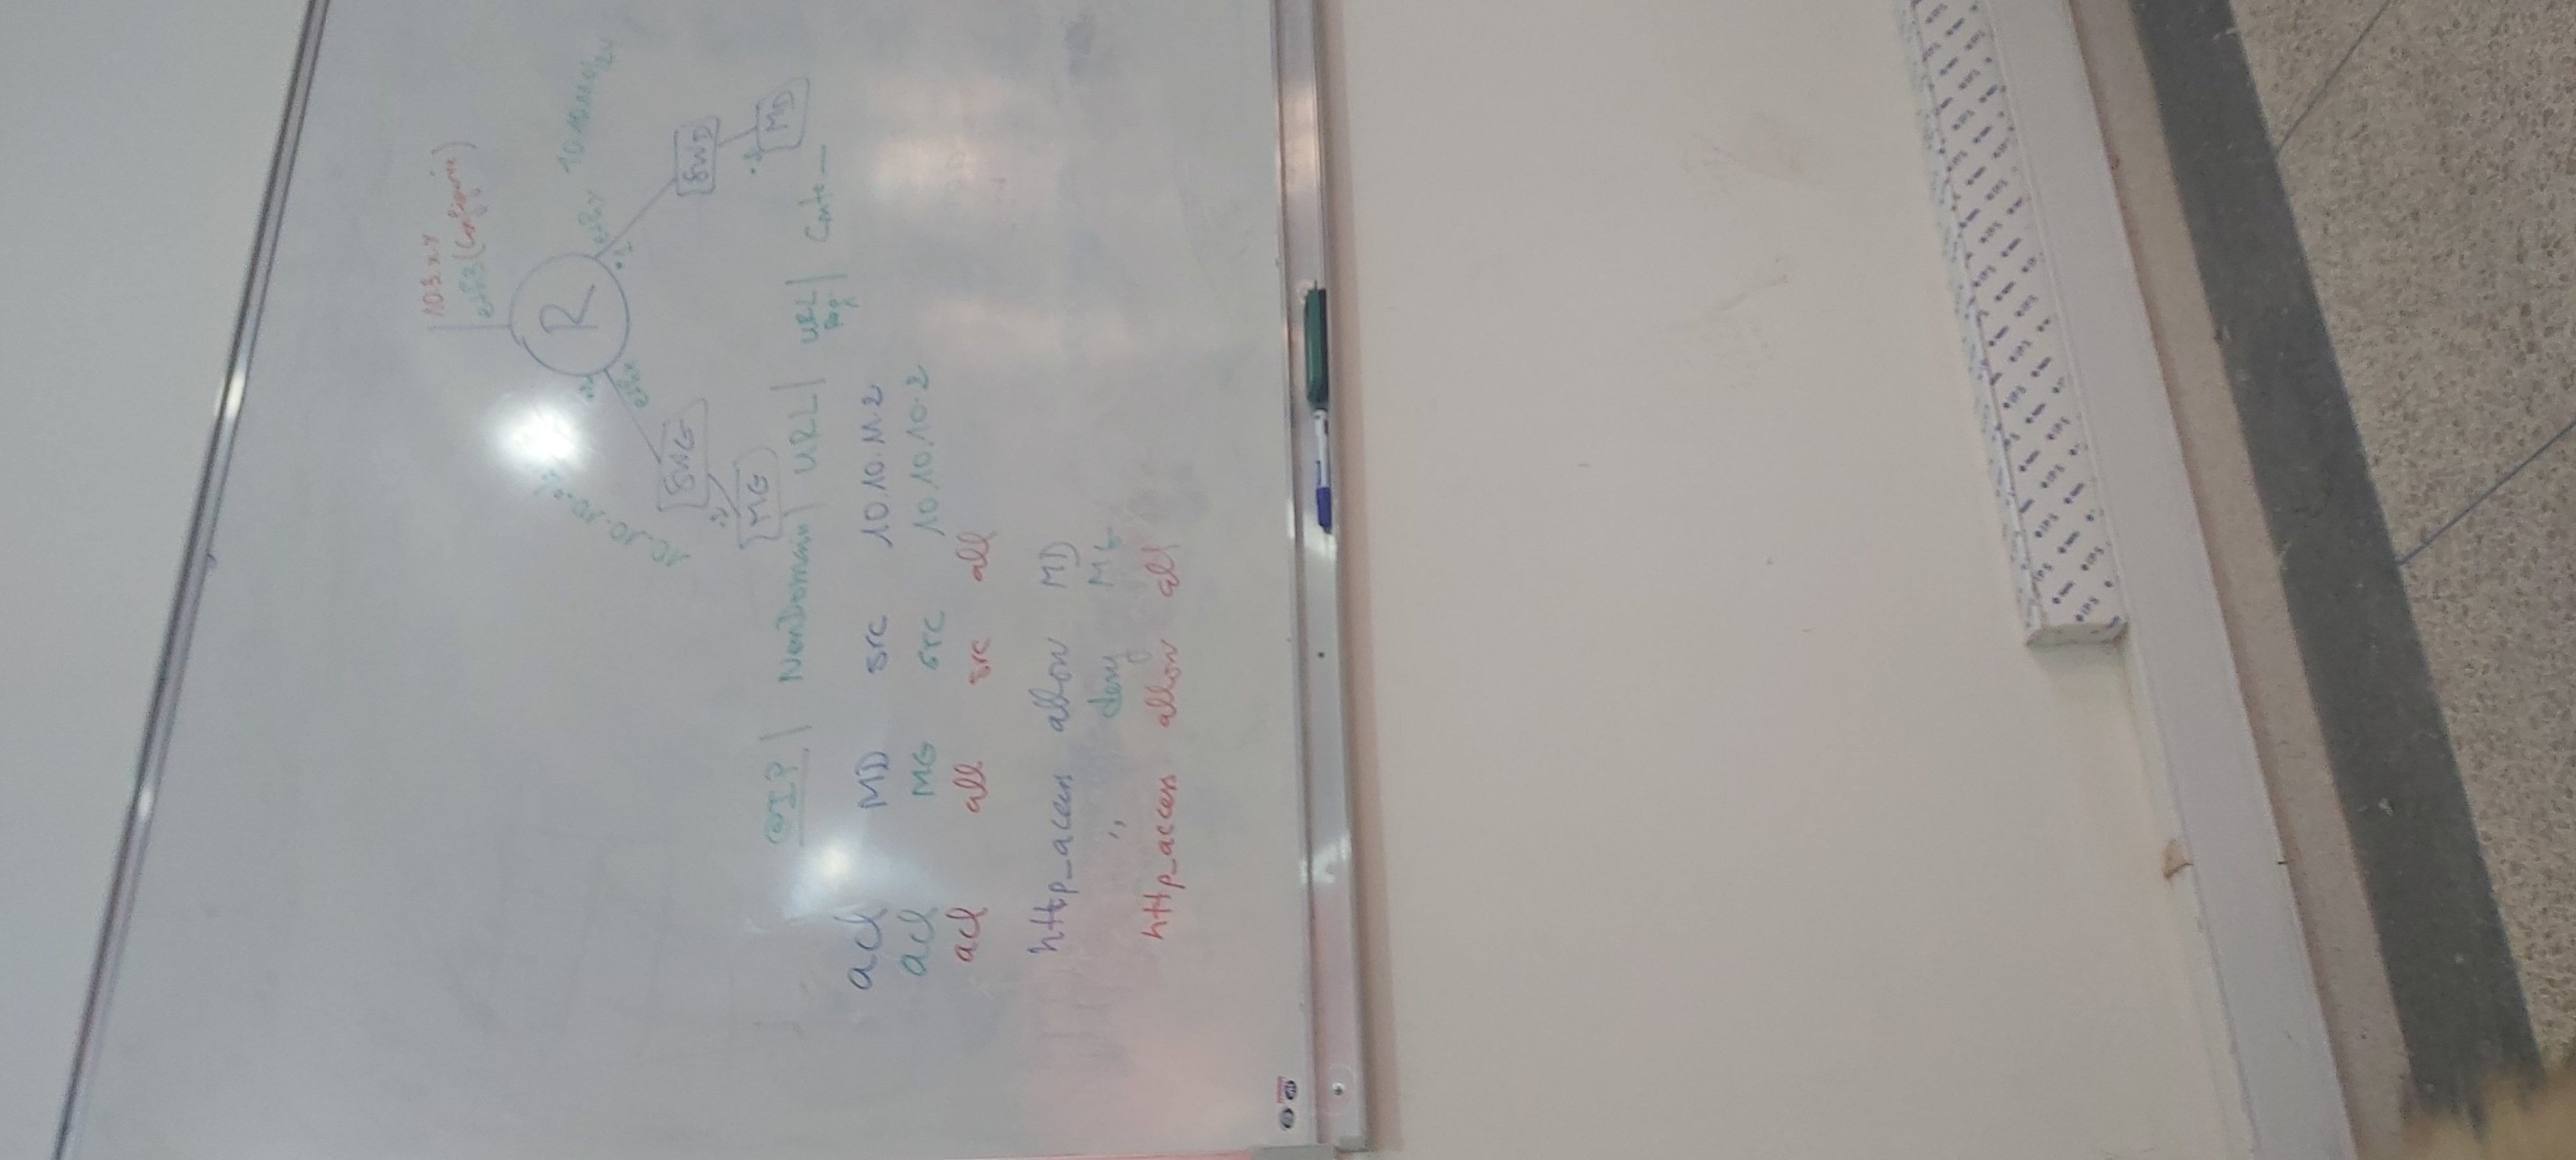 10.3.x.y
eth3 (Configurée)
R
10.10.10.0/
ethx
ethy
.1
10.10.11.0/24
SWG
SWD
.2
MG
MD
@IP | NomDomain | URL | URL | Conte_
Reg
acl MD src 10.10.11.2
acl MG src 10.10.10.2
acl all src all
http_access allow MD
,, deny MG
http_access allow all